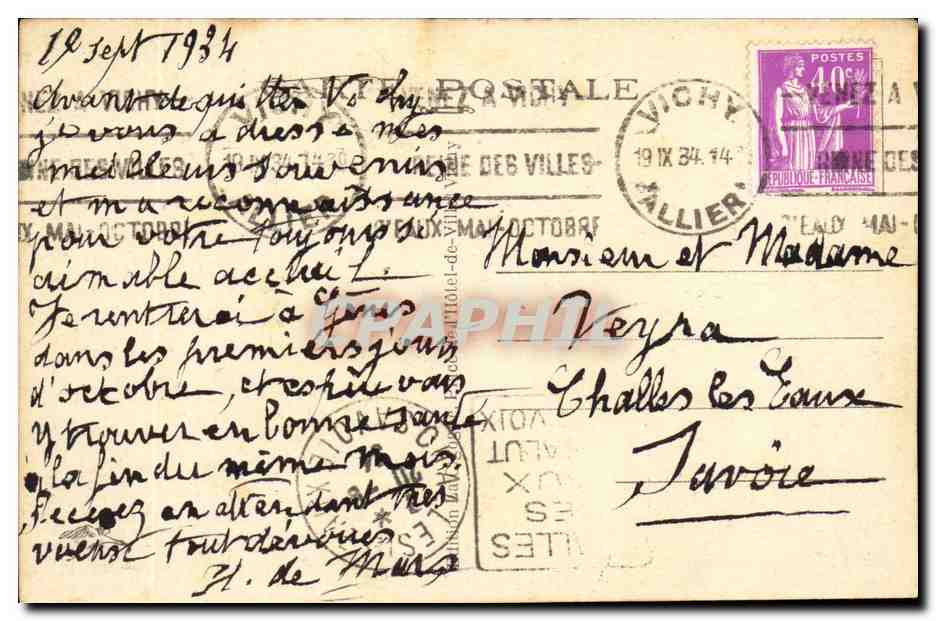 19 Sept 1934
CARTE POSTALE
Avant de quitter Vichy
je vous adresse mes
meilleurs souvenirs
et ma reconnaissance
pour votre toujours si
aimable accueil.
Je rentrerai à
dans les premiers jours
d'octobre, et espère vous
y trouver en bonne santé
à la fin du même mois.
Recevez en attendant très
tout dévoués
H. de Mars
POSTES
40c
RÉPUBLIQUE FRANÇAISE
VICHY
19 IX 34 · 14
ALLIER
VENEZ A VICHY
REINE DES VILLES-
D'EAUX MAI-OCTOBRE
Monsieur et Madame
Veyra
Challes les Eaux
Savoie
CHALLES-LES-EAUX
SAVOIE
CHALLES
LES
EAUX
SALUT
VOIX
de l'Hôtel-de-Ville, Vichy
CPAPHIL